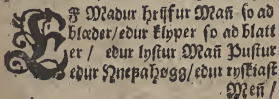 EF Madur hrijfur Mañ so ad
blæder/edur klyper so ad blatt
er / edur lystur Mañ Pustur
edur Hnefahøgg/edur ryskiast
Meñ /